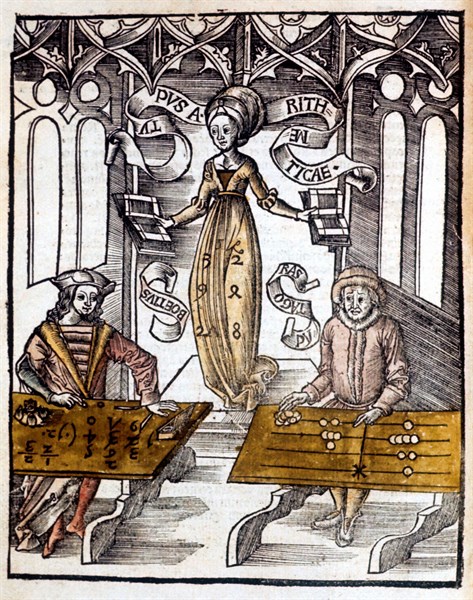 TY
PVS A·
RITH=
ME
TICAE·
BOETIVS
PY
TAGO
RAS
1
3 2
9 4
27 8